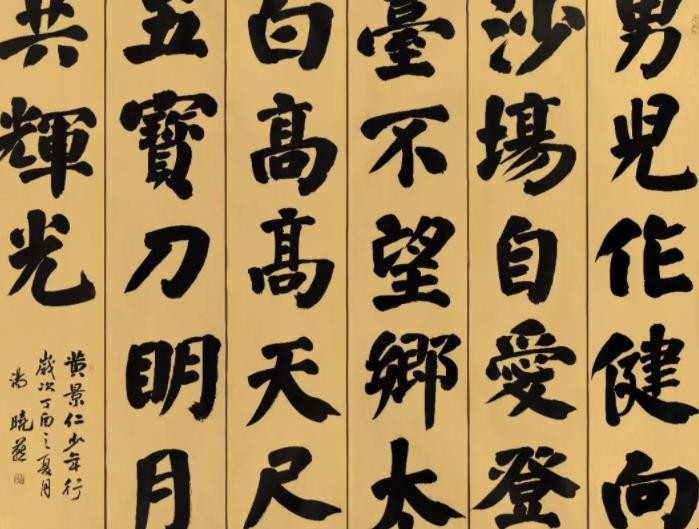 男兒作健向
沙場自愛登
臺不望鄉太
白高高天尺
五寶刀明月
共輝光
黄景仁少年行
歲次丁酉之夏月
湯曉